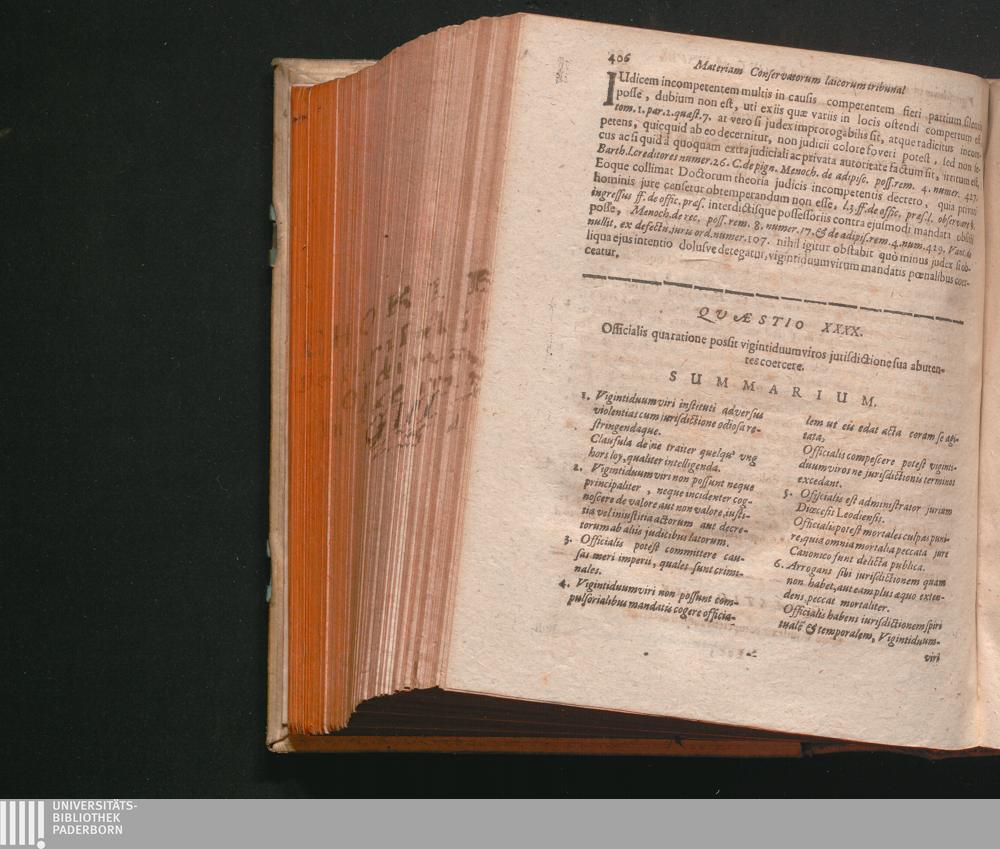 406
Materiam Conservatorum laicorum tribunal
IUdicem incompetentem multis in causis competentem fieri partium silentio
posse, dubium non est, uti ex iis quæ variis in locis ostendi compertum est
tom. 1. par. 2. quæst. 7. at vero si judex improrogabilis sit, atque radicitus incom-
petens, quicquid ab eo decernitur, non judicii colore foveri potest, sed non se-
cus ac si quid à quoquam extrajudiciali ac privata autoritate factum sit, irritum est,
Barth. l. creditores numer. 26. C. de pign. Menoch. de adipisc. poss. rem. 4. numer. 427.
Eoque collimat Doctorum theoria judicis incompetentis decreto, quia privati
hominis jure censetur obtemperandum non esse, l. 3. ff. de offic. præs. l. observare §.
ingressus ff. de offic. præs. interdictisque possessoriis contra ejusmodi mandata obsisti
posse, Menoch. de rec. poss. rem. 8. numer. 17. & de adipis. rem. 4. num. 429. Vant. de
nullit. ex defectu. juris ord. numer. 107. nihil igitur obstabit quò minus judex si ob-
liqua ejus intentio dolusve detegatur, vigintiduumvirum mandatis pœnalibus coer-
ceatur.
QVÆSTIO XXXX.
Officialis qua ratione possit vigintiduumviros jurisdictione sua abuten-
tes coercere.
SUMMARIUM.
1. Vigintiduumviri instituti adversus
violentias cum jurisdictione odiosa re-
stringendaque.
Clausula de ne traiter quelqu' vng
hors loy, qualiter intelligenda.
2. Vigintiduumviri non possunt neque
principaliter, neque incidenter cog-
noscere de valore aut non valore, iusti-
tia vel iniustitia actorum aut decre-
torum ab aliis judicibus latorum.
3. Officialis potest committere cau-
sas meri imperii, quales sunt crimi-
nales.
4. Vigintiduumviri non possunt com-
pulsorialibus mandatis cogere officia-
lem ut eis edat acta coram se agi-
tata,
Officialis compescere potest viginti-
duumviros ne jurisdictionis terminos
excedant.
5. Officialis est administrator jurium
Diœcesis Leodiensis.
Officialis potest mortales culpas puni-
re, quia omnia mortalia peccata jure
Canonico sunt delicta publica.
6. Arrogans sibi jurisdictionem quam
non habet, aut eam plus æquo exten-
dens, peccat mortaliter.
Officialis habens iurisdictionem spiri
tualē & temporalem, Vigintiduum-
viri
UNIVERSITÄTS-
BIBLIOTHEK
PADERBORN